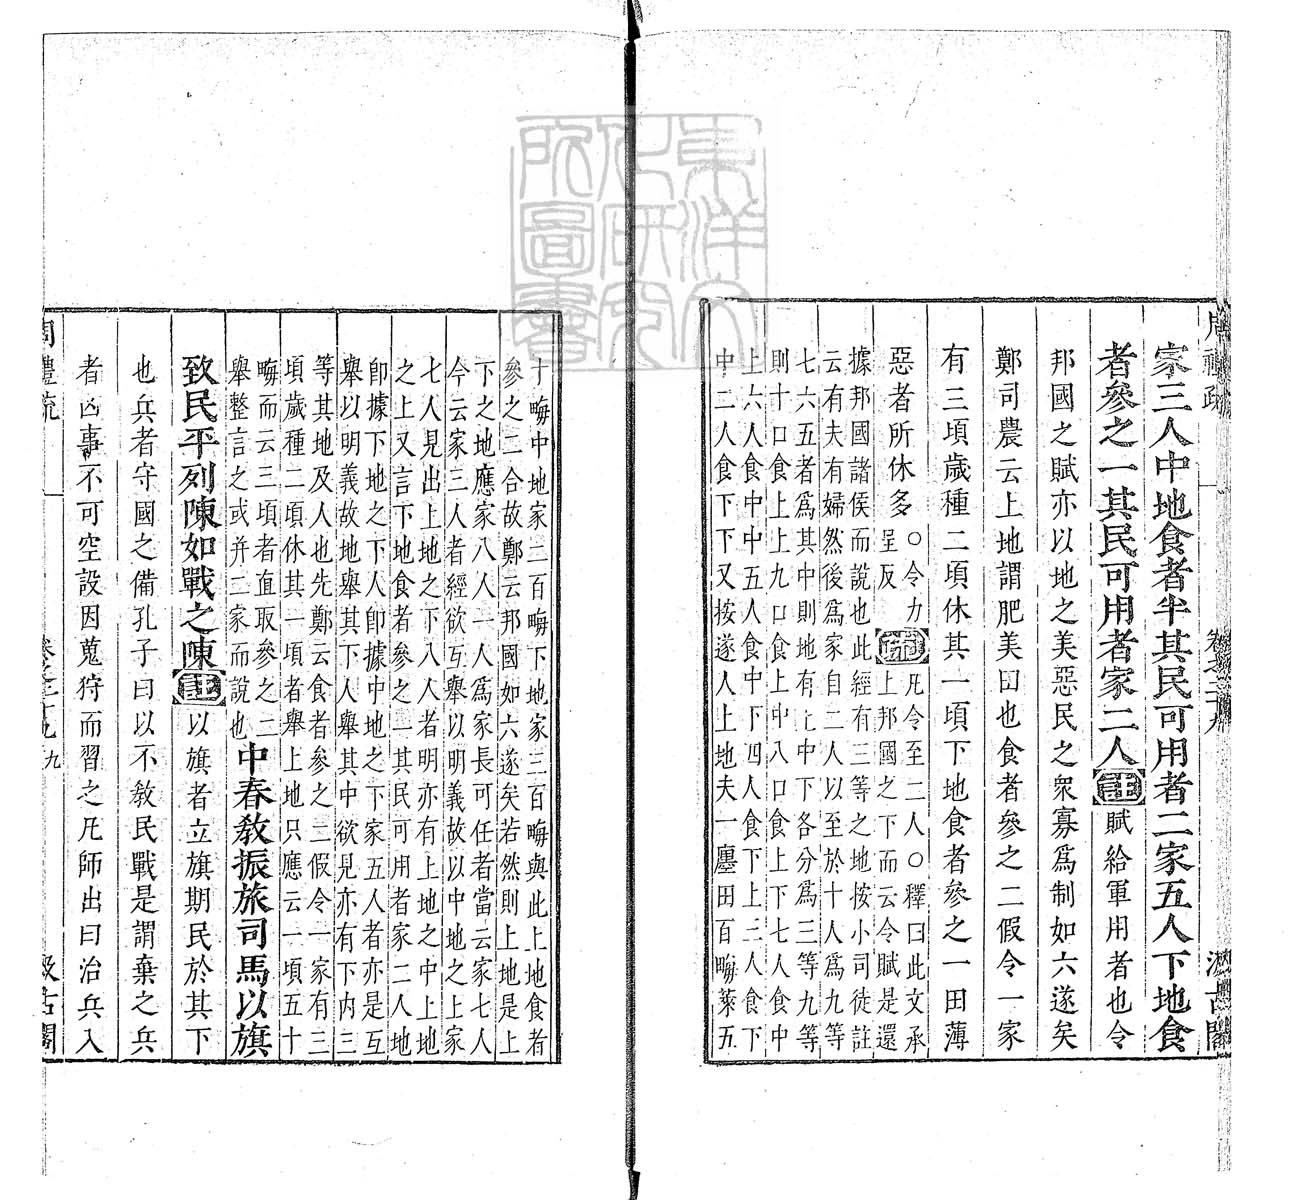 周禮疏 卷之二十九 汲古閣
家三人中地食者半其民可用者二家五人下地食
者參之一其民可用者家二人註賦給軍用者也令
邦國之賦亦以地之美惡民之衆寡爲制如六遂矣
鄭司農云上地謂肥美田也食者參之二假令一家
有三頃歲種二頃休其一頃下地食者參之一田薄
惡者所休多
○令力
呈反
疏
凡令至二人○釋曰此文承
上邦國之下而云令賦是還
據邦國諸侯而說也此經有三等之地按小司徒註
云有夫有婦然後爲家自二人以至於十人爲九等
七六五者爲其中則地有上中下各分爲三等九等
則十口食上上九口食上中八口食上下七人食中
上六人食中中五人食中下四人食下上三人食下
中二人食下下又按遂人上地夫一廛田百畮萊五
十畮中地家二百畮下地家三百畮與此上地食者
參之二合故鄭云邦國如六遂矣若然則上地是上
下之地應家八人一人爲家長可任者當云家七人
今云家三人者經欲互舉以明義故以中地之上家
七人見出上地之下八人者明亦有上地之中上地
之上又言下地食者參之一其民可用者家二人地
卽據下地之下人卽據中地之下家五人者亦是互
舉以明義故地舉其下人舉其中欲見亦有下内三
等其地及人也先鄭云食者參之二假令一家有三
頃歲種二頃休其一頃者舉上地只應云一頃五十
畮而云三頃者直取參之二
舉整言之或并二家而說也
中春敎振旅司馬以旗
致民平列陳如戰之陳註以旗者立旗期民於其下
也兵者守國之備孔子曰以不敎民戰是謂棄之兵
者凶事不可空設因蒐狩而習之凡師出曰治兵入
周禮疏 卷之二十九 九 汲古閣
東洋文
化研究
所圖書